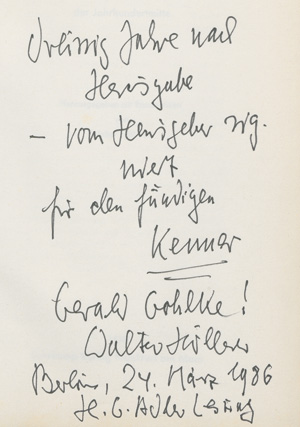 Dreissig Jahre nach
Herausgabe
– vom Herausgeber sig-
niert
für den fündigen
Kenner
Gerald Gohlke!
Walter Höllerer
Berlin, 24. März 1986
H. G. Adler Lesung